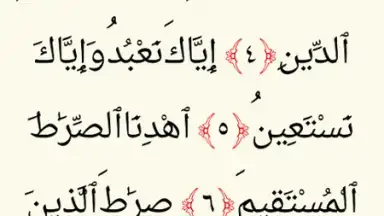 ٱلدِّينِ ﴿٤﴾ إِيَّاكَ نَعْبُدُ وَإِيَّاكَ
نَسْتَعِينُ ﴿٥﴾ ٱهْدِنَا ٱلصِّرَٰطَ
ٱلْمُسْتَقِيمَ ﴿٦﴾ صِرَٰطَ ٱلَّذِينَ